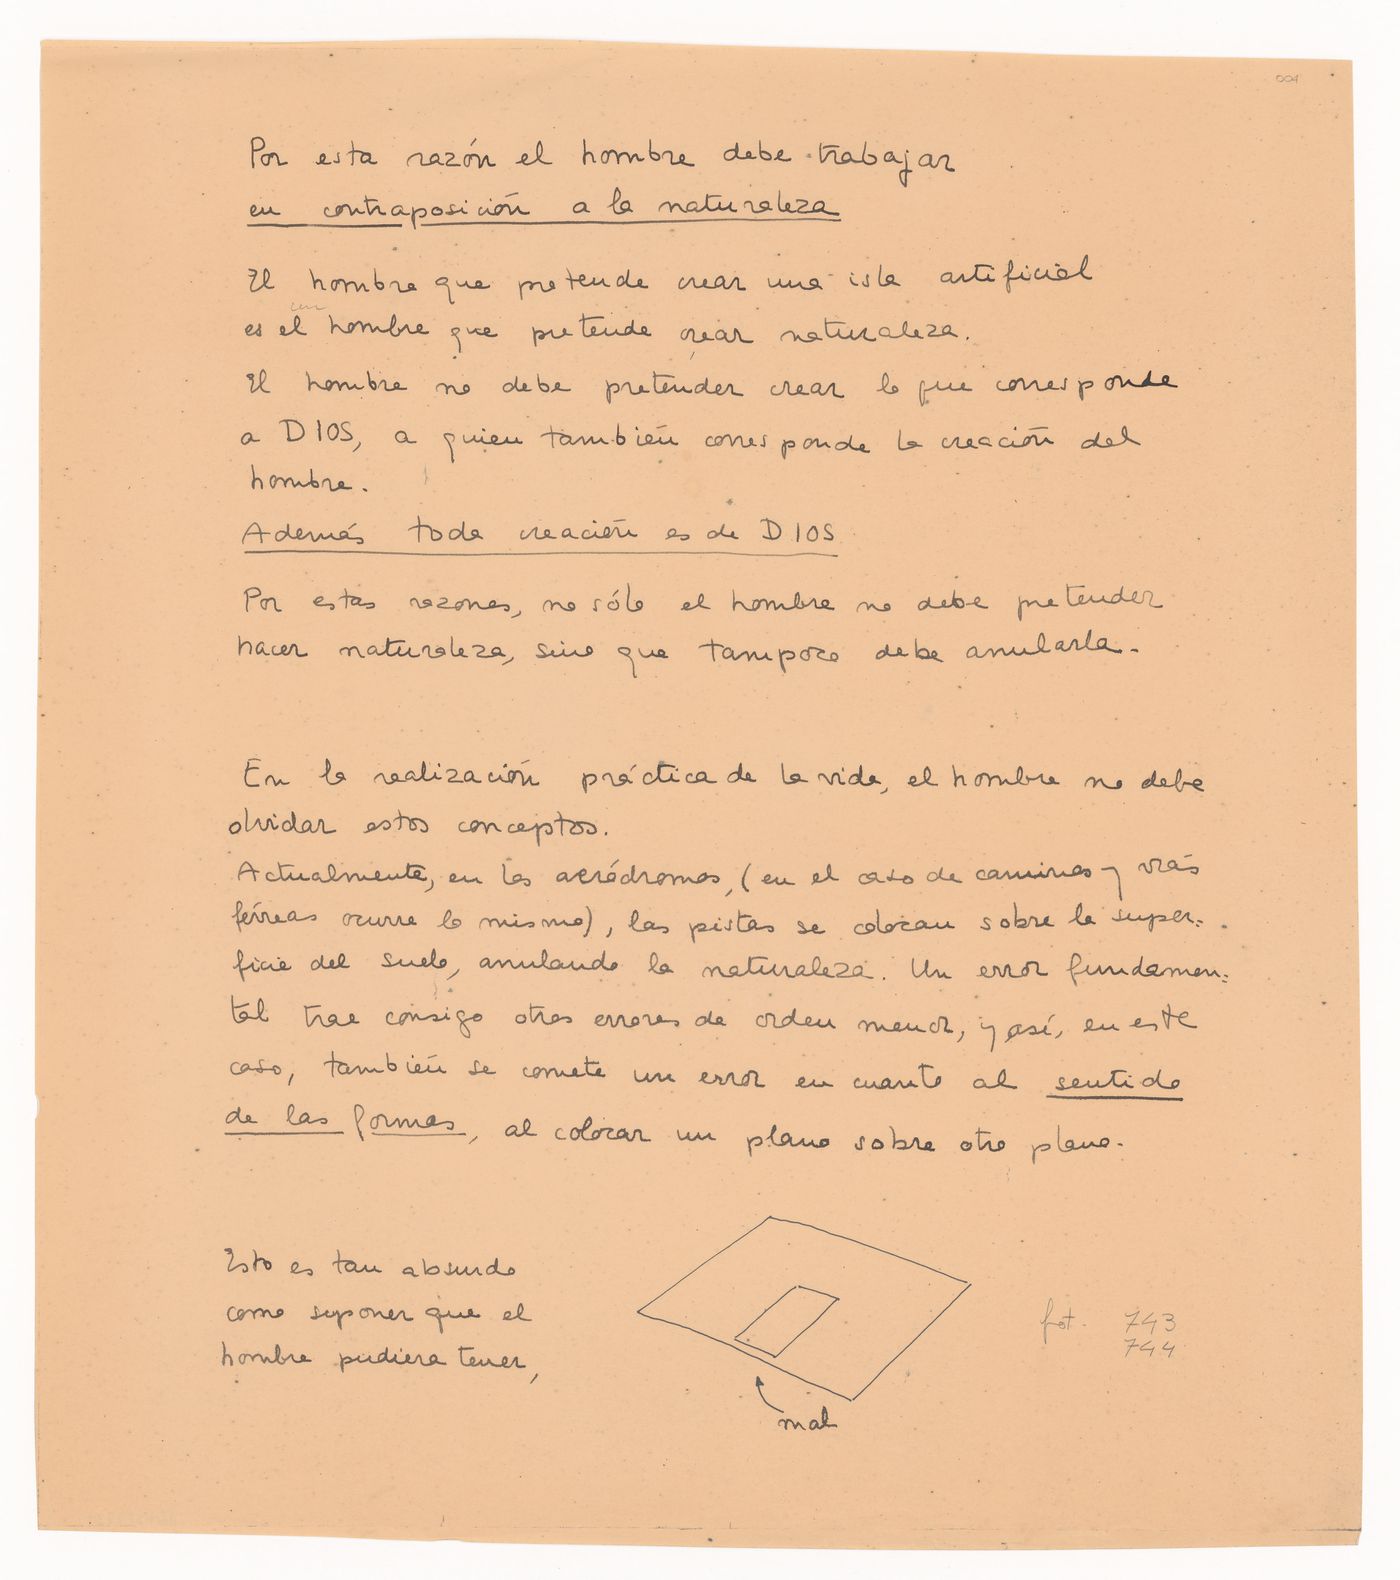 004
Por esta razón el hombre debe trabajar
en contraposición a la naturaleza
El hombre que pretende crear una isla artificial
un
es el hombre que pretende crear naturaleza.
El hombre no debe pretender crear lo que corresponde
a DIOS, a quien también corresponde la creación del
hombre.
Además toda creación es de DIOS
Por estas razones, no sólo el hombre no debe pretender
hacer naturaleza, sino que tampoco debe anularla.
En la realización práctica de la vida, el hombre no debe
olvidar estos conceptos.
Actualmente, en los aeródromos, (en el caso de caminos y vías
férreas ocurre lo mismo), las pistas se colocan sobre la super=
ficie del suelo, anulando la naturaleza. Un error fundamen=
tal trae consigo otros errores de orden menor, y así, en este
caso, también se comete un error en cuanto al sentido
de las formas, al colocar un plano sobre otro plano.
Esto es tan absurdo
como suponer que el
hombre pudiera tener,
fot. 743
744
mal